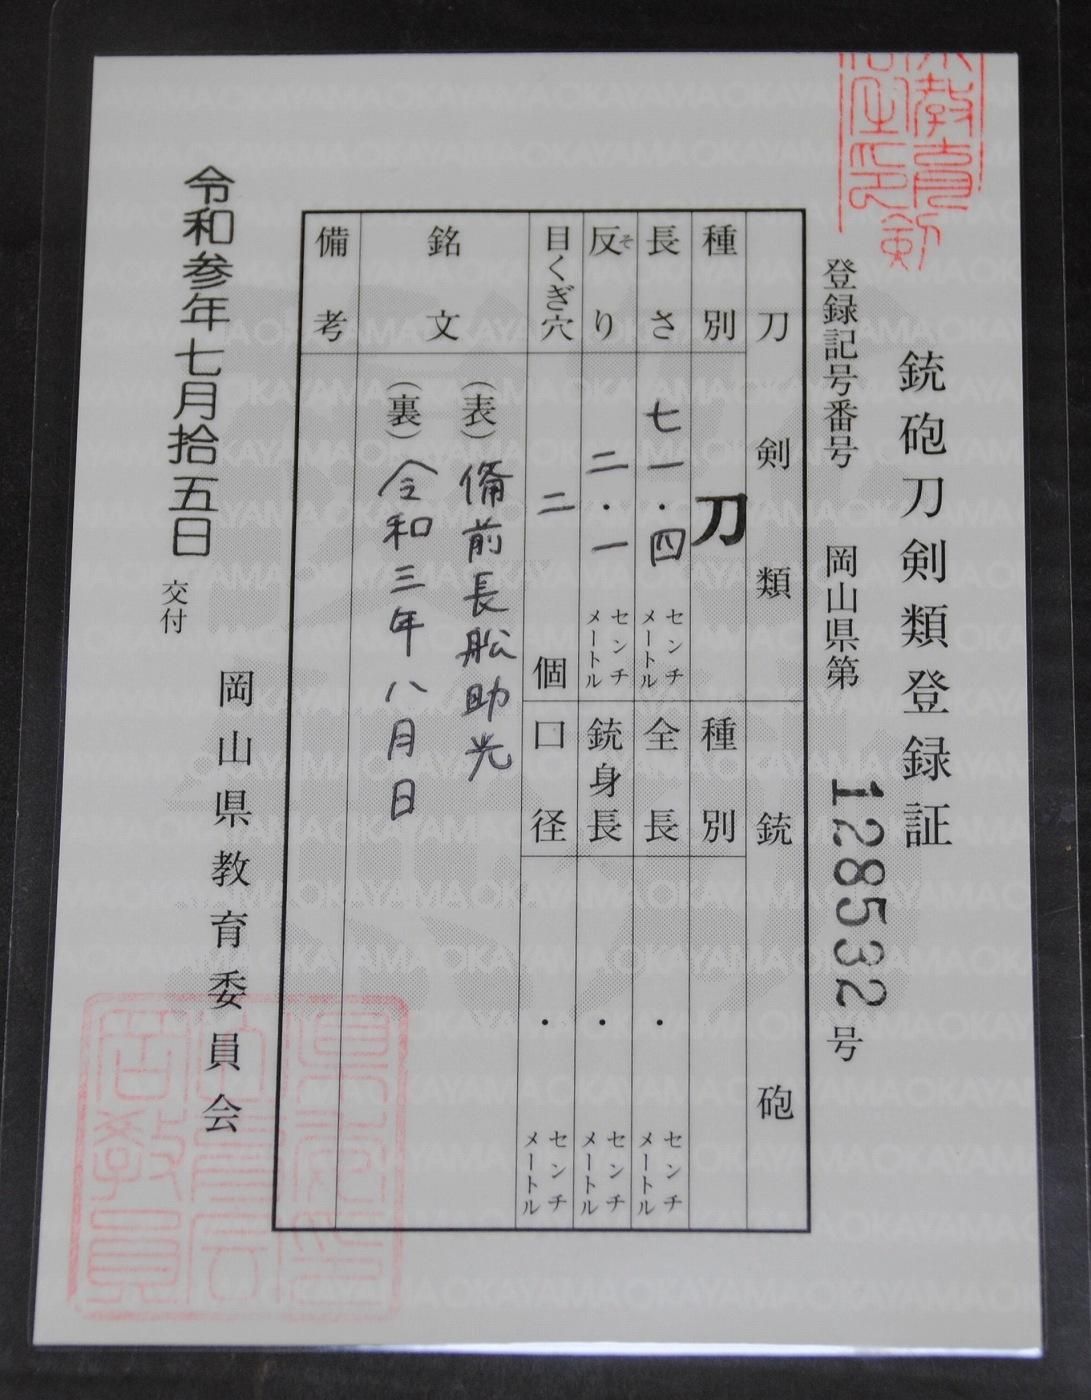 銃砲刀剣類登録証
登録記号番号 岡山県第 128532 号
刀剣類
銃砲
種別 刀
長さ 七一.四 センチメートル
反り 二.一 センチメートル
そ
目くぎ穴 二 個
銘文 (表) 備前長船助光
(裏) 令和三年八月日
備考
種別
全長 . センチメートル
銃身長 . センチメートル
口径 . センチメートル
令和参年七月拾五日 交付
岡山県教育委員会
OKAYAMA